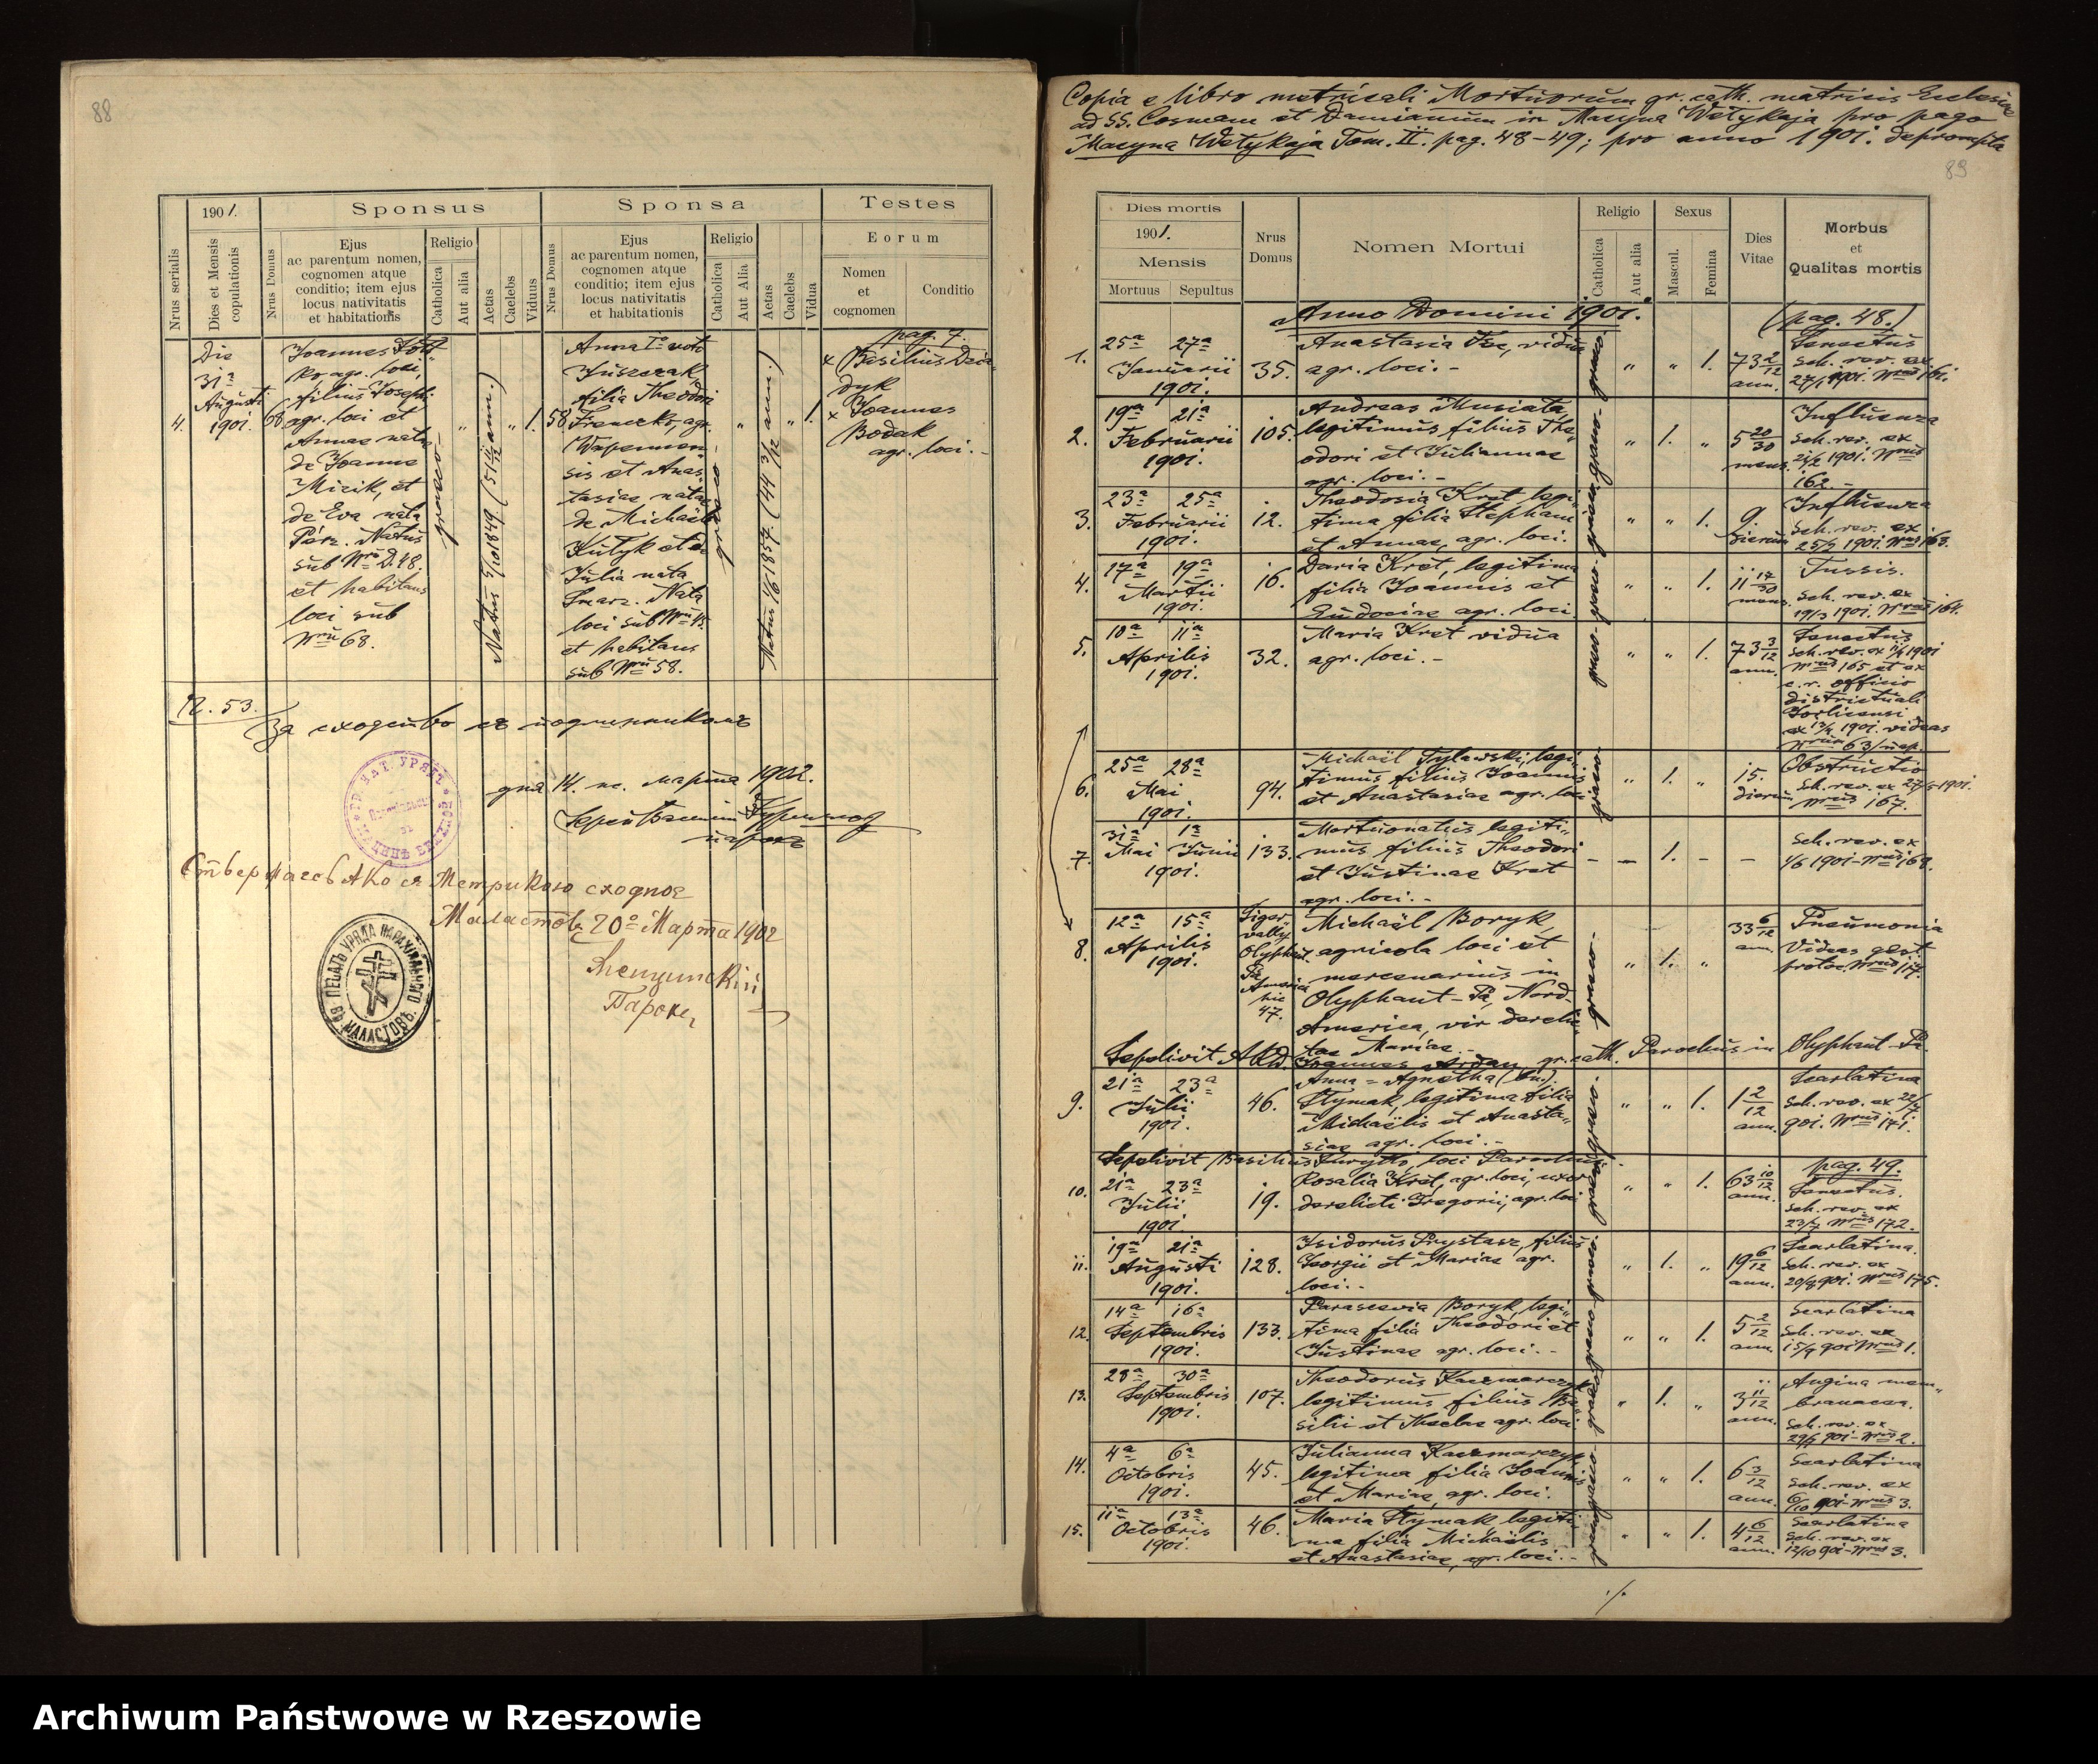 88
1901.
Sponsus
Sponsa
Testes
Nrus serialis
Dies et Mensis copulationis
Nrus Domus
Ejus
ac parentum nomen,
cognomen atque
conditio; item ejus
locus nativitatis
et habitationis
Religio
Catholica
Aut alia
Aetas
Caelebs
Viduus
Nrus Domus
Ejus
ac parentum nomen,
cognomen atque
conditio; item ejus
locus nativitatis
et habitationis
Religio
Catholica
Aut Alia
Aetas
Caelebs
Vidua
Eorum
Nomen
et
cognomen
Conditio
4.
Die
31a
Augusti
1901.
68
Joannes
agr. loci,
filius Josephi
agr. loci et
Annae nata
de Joanne
Micik, et
de Eva nata
Natus
sub Nro D. 48.
et habitans
loci sub
Nru 68.
graeco
Natus 5/10 1849 (51 11/12 ann.)
"
1.
58
Anna Io voto
Juszczak
filia Theodori
agr.
et Anas
tasiae nata
de Michaele
Kutyk et de
Julia nata
Nata
loci sub Nru 45.
et habitans
sub Nru 58.
graeco
"
1.
pag. 7.
x Basilius Dzia
dyk
x Joannes
Bodak
agr. loci.-
Ч. 53.
За сходство съ подлинникомъ
дня 14. марта 1902.
парохъ
Ствер
сходное
20го Марта 1902
Парох
Copia e libro metricali Mortuorum gr. cath. matricis Ecclesiae
ad SS. Cosmam et Damianum in Macyna Wełykaja pro pago
Macyna Wełykaja Tom. II. pag. 48-49; pro anno 1901. deprompta
89
Dies mortis
1901.
Mensis
Mortuus
Sepultus
Nrus
Domus
Nomen Mortui
Religio
Catholica
Aut alia
Sexus
Mascul.
Femina
Dies
Vitae
Morbus
et
Qualitas mortis
Anno Domini 1901.
(pag. 48.)
1.
25a 27a
Januarii
1901.
35.
Anastasia vidua
agr. loci.-
" " 1.
73 2/12
ann.
Senectus
Sch. rev. ex
27/1 1901. Nrus 161.
2.
19a 21a
Februarii
1901.
105.
Andreas Musiała
legitimus filius The
odori et Juliannae
agr. loci.-
" 1. "
5 20/30
mens.
Influenza
Sch. rev. ex
21/2 1901. Nrus
162.-
3.
23a 25a
Februarii
1901.
12.
Theodosia Kret legi
tima filia Stephani
et Annae, agr. loci.
" " 1.
9
dierum
Influenza
Sch. rev. ex
25/2 1901. Nrus 163.
4.
17a 19a
Martii
1901.
16.
Daria Kret, legitima
filia Joannis et
Eudociae agr. loci
" " 1.
11 17/30
mens.
Tussis.
Sch. rev. ex
19/3 1901. Nrus 164.
5.
10a 11a
Aprilis
1901.
32.
Maria Kret vidua
agr. loci.-
" " 1.
73 3/12
ann.
Senectus
Sch. rev. ex 11/4 1901
Nrus 165 et ex
c. r. officio
districtuali
Gorlicensi
1901. videas
Nrum 63
6.
25a 28a
Mai
1901.
94.
Michaël Tylawski, legi
timus filius Joannis
et Anastasiae agr. loci
" 1. "
15.
dierum
Obstructio
Sch. rev. ex 27/5 1901.
Nrus 167.
7.
31a 1a
Mai Junii
1901.
133.
Mortuonatus legiti
mus filius Theodori
et Justinae Kret
agr. loci.-
- - 1. - -
Sch. rev. ex
1/6 1901-Nrus 169.
8.
12a 15a
Aprilis
1901.
Olyphant
Pa
America
47.
Michaël Boryk,
agricola loci et
mercenarius in
Olyphant-Pa, Nord-
America, vir derelic
tae Mariae.-
" 1. "
33 6/12
ann.
Pneumonia
Videas gest.
protoc. Nrus 117.
Sepelivit Joannes Ardan, gr. cath. Parochus in Olyphant-Pa.
9.
21a 23a
Julii
1901.
46.
Anna = Agnetha (bn.)
Stymak, legitima filia
Michaëlis et Anasta
siae agr. loci.-
" " 1.
1 2/12
ann.
Scarlatina
Sch. rev. ex 22/7
901. Nrus 171.
Sepelivit Basilius loci Parochus.
pag. 49.
10.
21a 23a
Julii
1901
19.
Rosalia Kret, agr. loci, uxor
derelicti Gregorii, agr. loci
" " 1.
63 10/12
ann.
Senectus.
Sch. rev. ex
23/7 Nrus 172.
11.
19a 21a
Augusti
1901.
128.
Isidorus Prystasz, filius
Georgii et Mariae agr.
loci.-
" 1. "
19 6/12
ann.
Scarlatina.
Sch. rev. ex
20/8 901. Nrus 175.
12.
14a 16a
Septembris
1901.
133.
Parascevia Boryk, legi
tima filia Theodori et
Justinae agr. loci.-
" " 1.
5 2/12
ann.
Scarlatina
Sch. rev. ex
15/9 901 Nrus 1.
13.
28a 30a
Septembris
1901.
107.
Theodorus Kaczmarczyk
legitimus filius Ba
silii et Theclae agr. loci
" 1. "
3 11/12
ann.
Angina mem
branacea.
Sch. rev. ex
29/9 901-Nrus 2.
14.
4a 6a
Octobris
1901.
45.
Julianna Kaczmarczyk
legitima filia Joannis
et Mariae, agr. loci.
" " 1.
6 3/12
ann.
Scarlatina
Sch. rev. ex
6/10 901-Nrus 3.
15.
11a 13a
Octobris
1901.
46.
Maria Stymak legiti
ma filia Michaëlis
et Anastasiae, agr. loci.-
" " 1.
4 6/12
ann.
Scarlatina
Sch. rev. ex
12/10 901-Nrus 3.
./.
Archiwum Państwowe w Rzeszowie